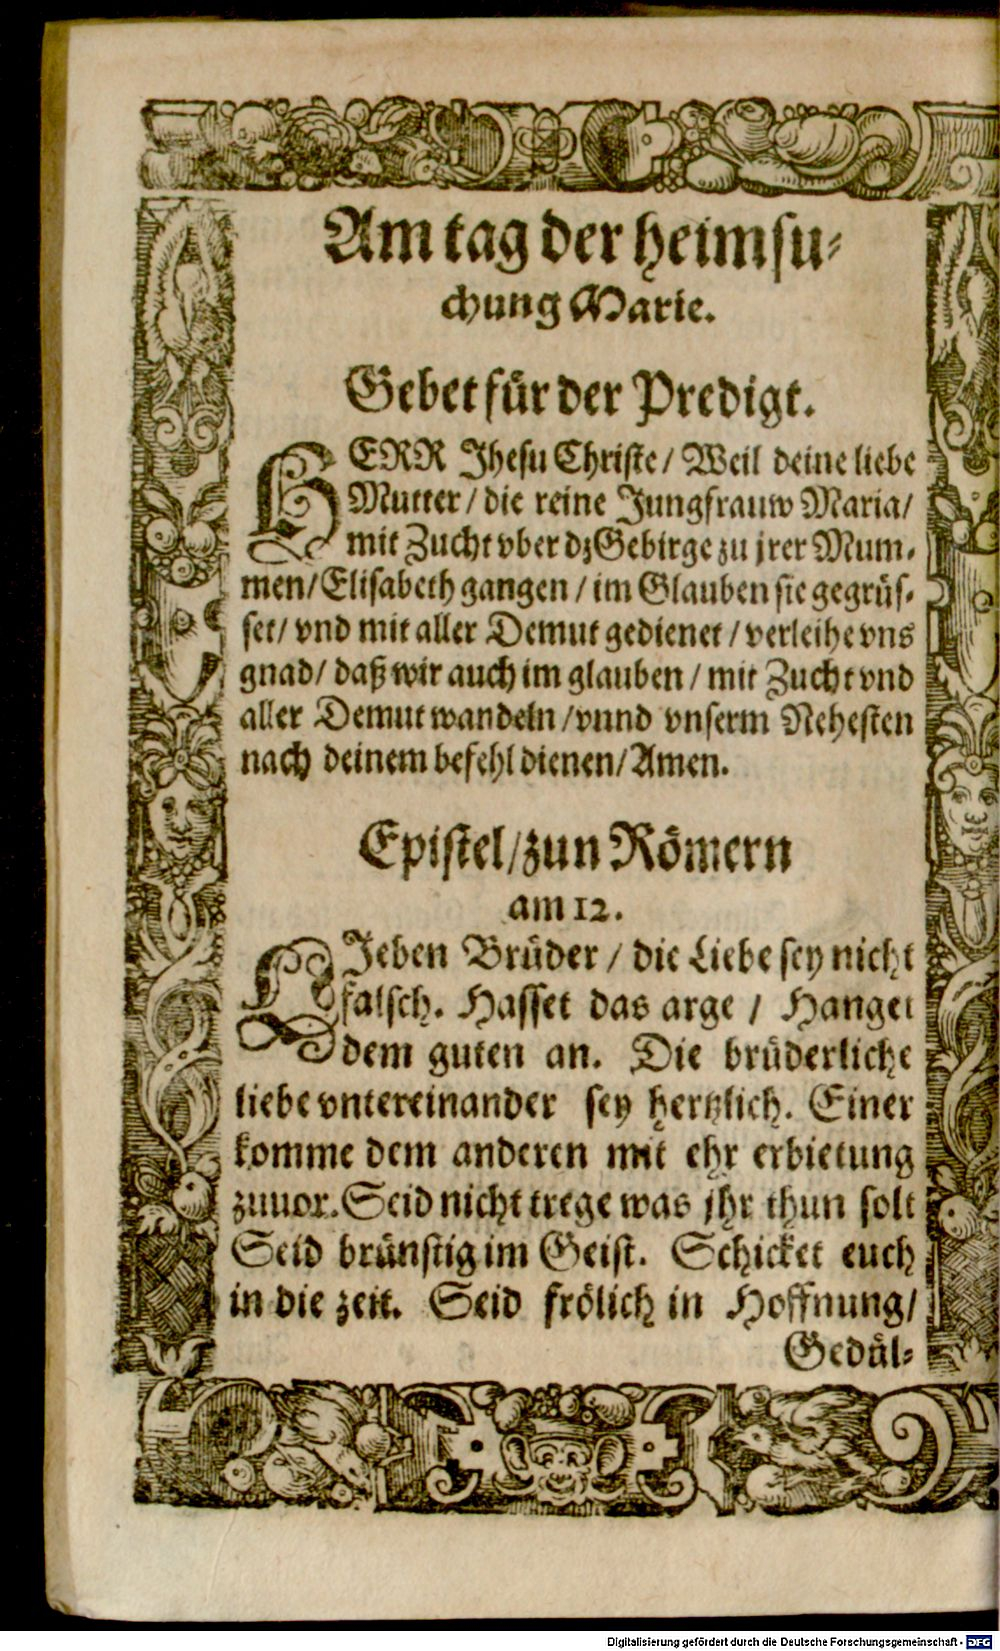 Am tag der heimsu-
chung Marie.
Gebet für der Predigt.
HERR Jhesu Christe / Weil deine liebe
Mutter / die reine Jungfrauw Maria /
mit Zucht vber dz Gebirge zu jrer Mum-
men / Elisabeth gangen / im Glauben sie gegrüs-
set / vnd mit aller Demut gedienet / verleihe vns
gnad / daß wir auch im glauben / mit Zucht vnd
aller Demut wandeln / vnnd vnserm Nehesten
nach deinem befehl dienen / Amen.
Epistel / zun Römern
am 12.
LIeben Brüder / die Liebe sey nicht
falsch. Hasset das arge / Hanget
dem guten an. Die brüderliche
liebe vntereinander sey hertzlich. Einer
komme dem anderen mit ehr erbietung
zuuor. Seid nicht trege was jhr thun solt
Seid brünstig im Geist. Schicket euch
in die zeit. Seid frölich in Hoffnung /
Gedül-
Digitalisierung gefördert durch die Deutsche Forschungsgemeinschaft - DFG